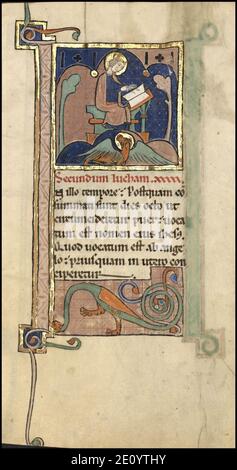 Secundum lucham. xxxx.
In illo tempore. Postquam co
summati sunt dies octo ut
circumcideretur puer: voca
tum est nomen eius ihesus
Quod vocatum est ab ange
lo. priusquam in utero con
ciperetur.
alamy
Image ID: 2E0YTHY
www.alamy.com